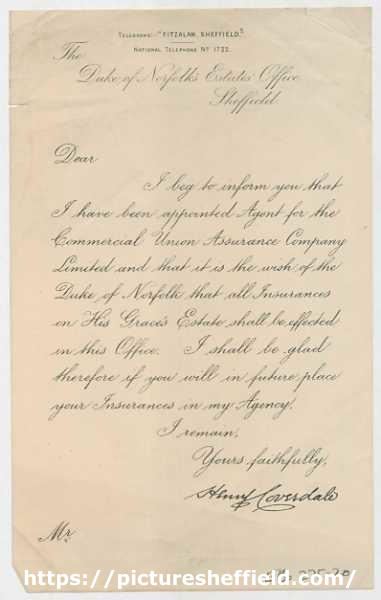 Telegrams:- "FITZALAN, SHEFFIELD."
NATIONAL TELEPHONE Nº 1722.
The
Duke of Norfolk's Estates Office
Sheffield
Dear
I beg to inform you that
I have been appointed Agent for the
Commercial Union Assurance Company
Limited and that it is the wish of the
Duke of Norfolk that all Insurances
on His Grace's Estate shall be effected
in this Office. I shall be glad
therefore if you will in future place
your Insurances in my Agency.
I remain,
Yours faithfully,
Henry Coverdale
Mr.
https://picturesheffield.com/